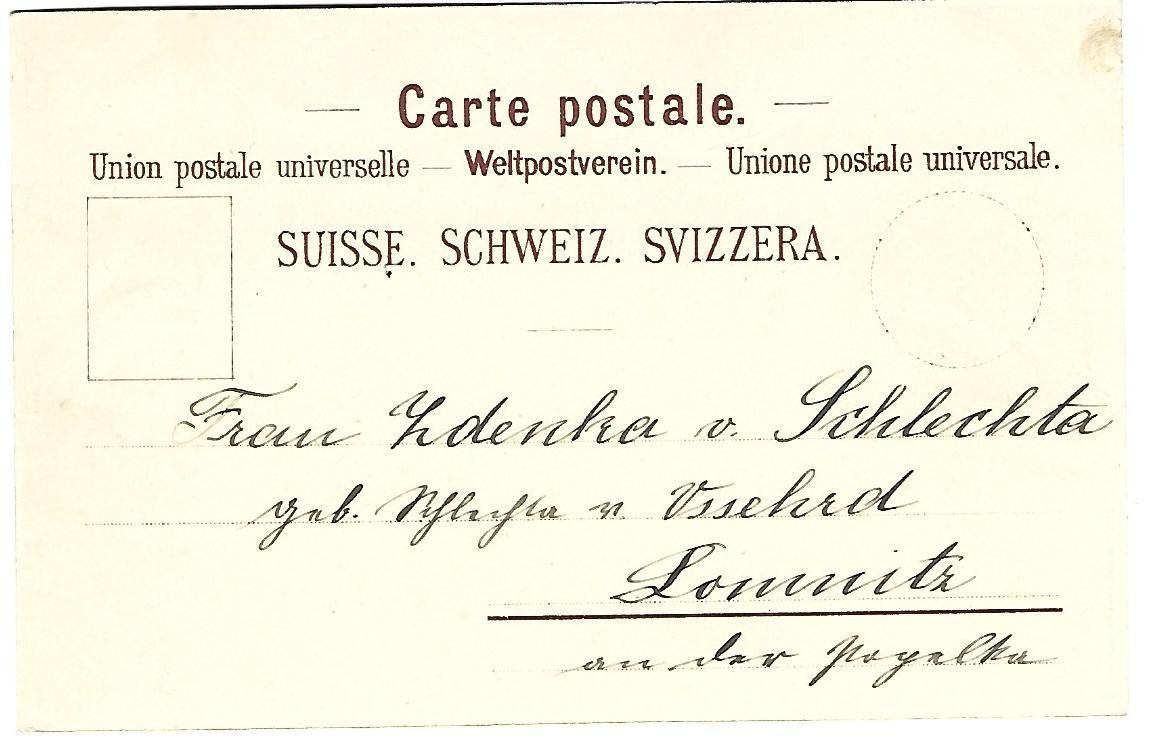 — Carte postale. —
Union postale universelle — Weltpostverein. — Unione postale universale.
SUISSE. SCHWEIZ. SVIZZERA.
Frau Zdenka v. Schlechta
geb. Schlechta v. Vssehrd
Lomnitz
an der Popelka